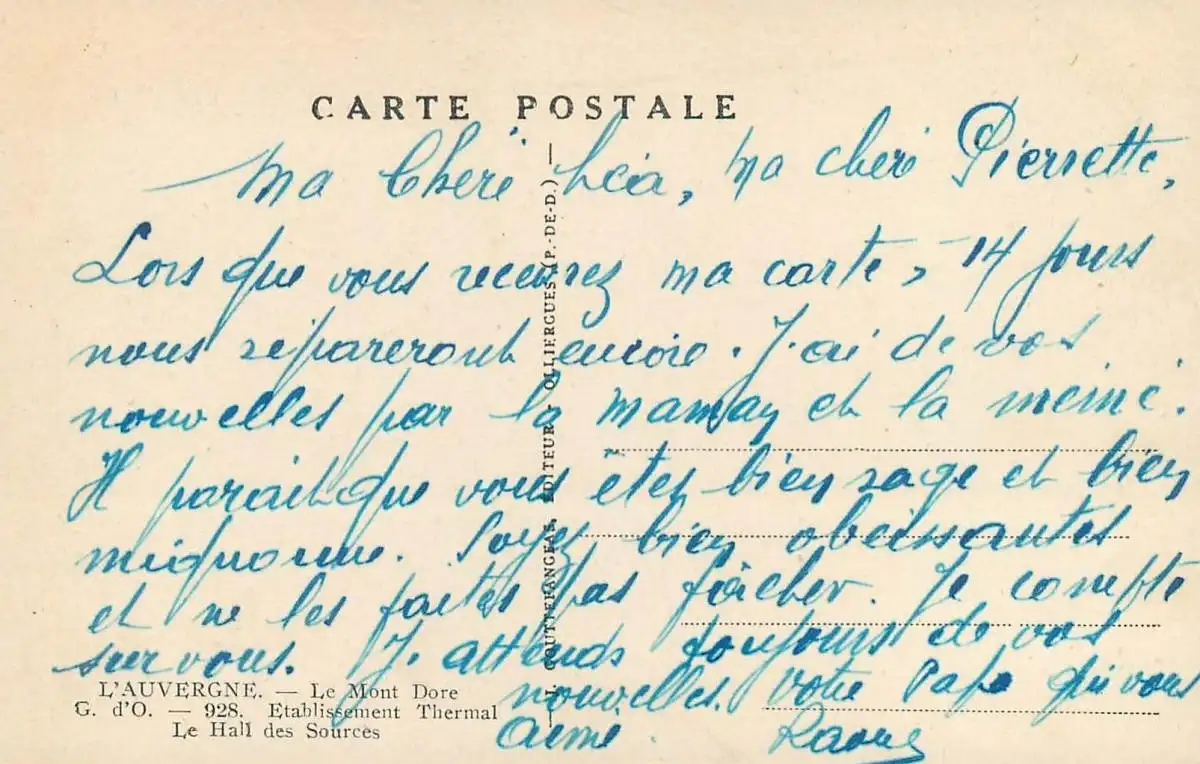 CARTE POSTALE
Ma Cheri Léa, ma cheri Pierrette,
Lors que vous recevrez ma carte, 14 jours
nous sépareront encore. J'ai de vos
nouvelles par la maman et la meme.
Il parait que vous etes bien sage et bien
mignonne. Soyez bien obeissantes
et ne les faites pas fâcher. Je compte
sur vous. J'attends toujours de vos
nouvelles. votre Papa qui vous
aime. Raoul
J. COUTTEFANGEAS, EDITEUR, OLLIERGUES (P.-DE-D.)
L'AUVERGNE. — Le Mont Dore
G. d'O. — 928. Etablissement Thermal
Le Hall des Sources